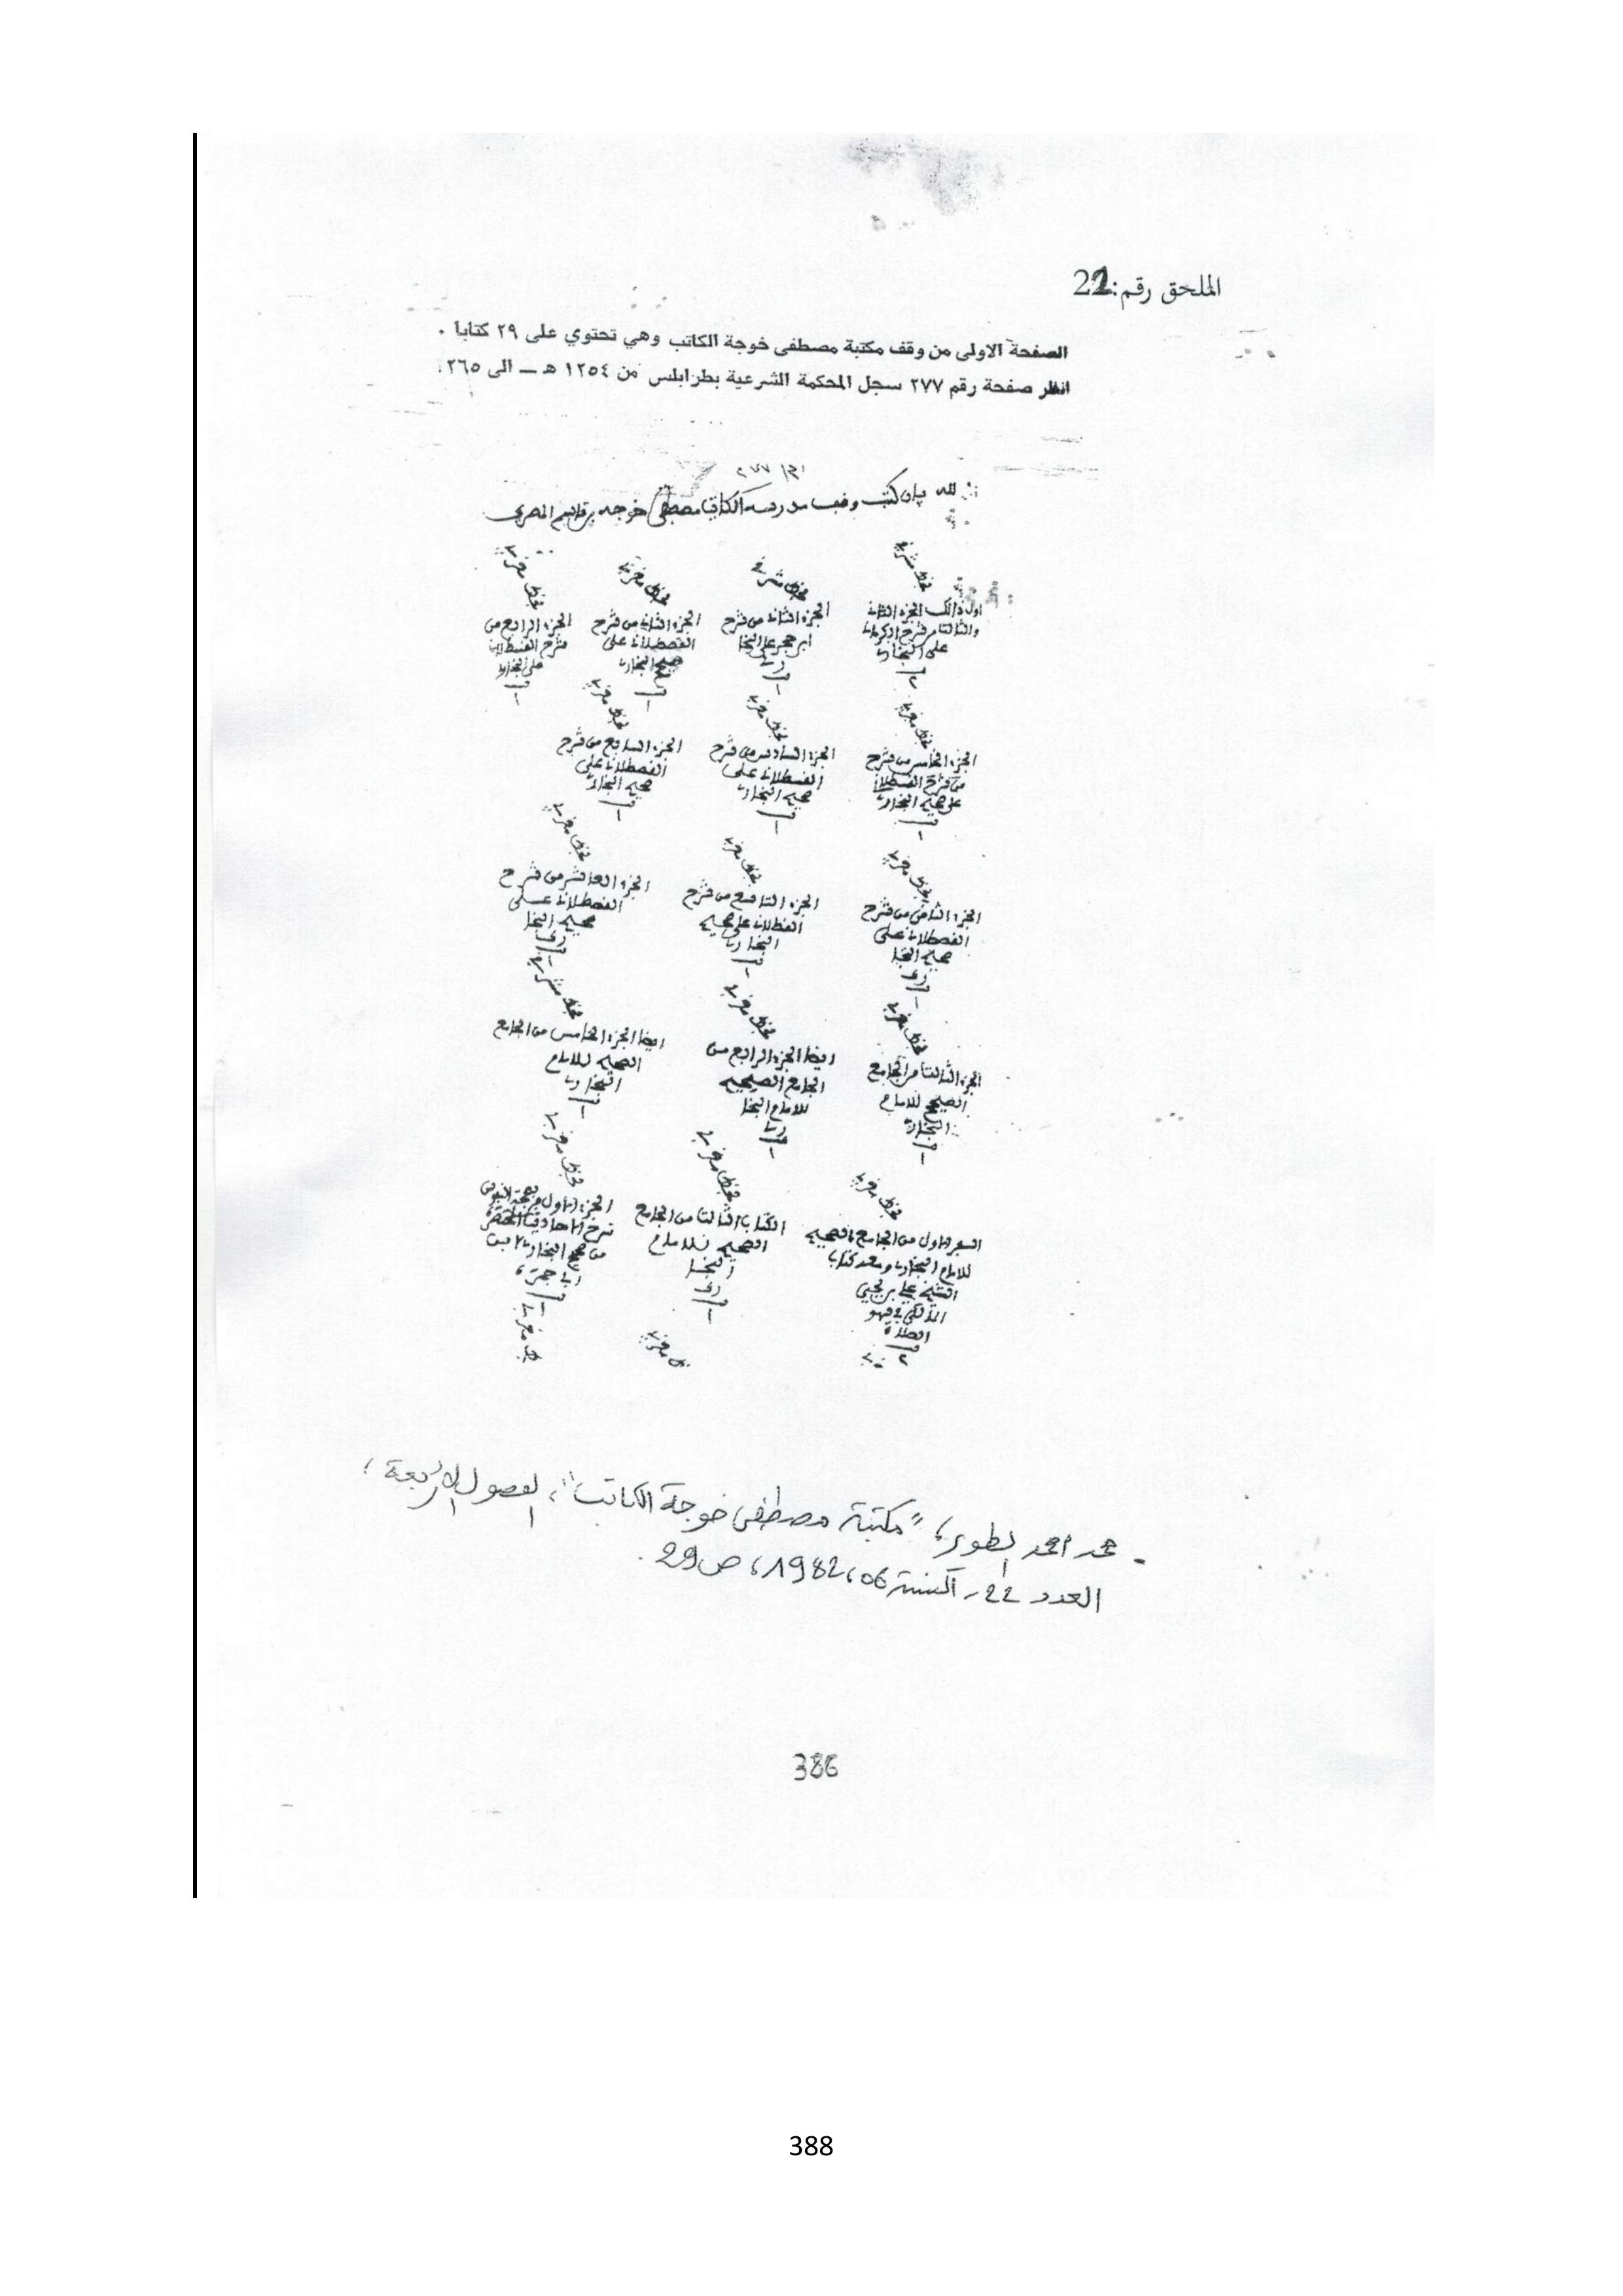 الملحق رقم:22
الصفحة الاولى من وقف مكتبة مصطفى خوجة الكاتب وهي تحتوي على ٢٩ كتابا .
انظر صفحة رقم ٢٧٧ سجل المحكمة الشرعية بطرابلس من ١٢٥٤ هـ ـ الى ٢٦٥
٢٧٧
لله بيان كتب وقف مدرسة الكاتب مصطفى خوجه بن قاسم المصري
بخط مشرقي
بخط مشرقي
بخط مغربي
بخط مغربي
اول ذالك الجزء الثاني
والثالث من شرح الكرماني
على البخاري
٢
الجزء الثاني من شرح
ابن حجر على البخا
ري
١
الجزء الثاني من شرح
القصطلاني على
صحيح البخاري
١
الجزء الرابع من
شرح القسطلاني
على البخاري
١
بخط مغربي
بخط مغربي
بخط مغربي
الجزء الخامس من شرح
من شرح القسطلاني
على صحيح البخاري
١
الجزء السادس من شرح
القسطلاني على
صحيح البخاري
١
الجزء السابع من شرح
القصطلاني على
صحيح البخاري
١
بخط مغربي
بخط مغربي
بخط مغربي
الجزء الثامن من شرح
القصطلاني على
صحيح البخا
ري
١
الجزء التاسع من شرح
القطلاني على صحيح
البخاري
١
الجزء العاشر من شرح
القصطلاني على
صحيح البخا
ري
١
بخط مغربي
بخط مغربي
بخط مشرقي
الجزء الثالث من الجامع
الصحيح للامام
البخاري
١
ايضا الجزء الرابع من
الجامع الصحيح
للامام البخا
ري
١
ايضا الجزء الخامس من الجامع
الصحيح للامام
البخاري
١
بخط مغربي
بخط مغربي
بخط مغربي
السفر الاول من الجامع الصحيح
للامام البخاري ومعه كتاب
الشيخ علي بن يحيى
المالكي في
الصلاة
٢
الكتاب الثالث من الجامع
الصحيح للامام
البخا
ري
١
الجزء الاول من بهجة النفوس
شرح الاحاديث المختصرة
من صحيح البخاري لابن
ابي جمرة
١
بخط مغربي
بخط مغربي
- محمد احمد الطوير، "مكتبة مصطفى خوجة الكاتب"، الفصول الأربعة،
العدد 22 - السنة 06، 1982، ص 29.
386
388